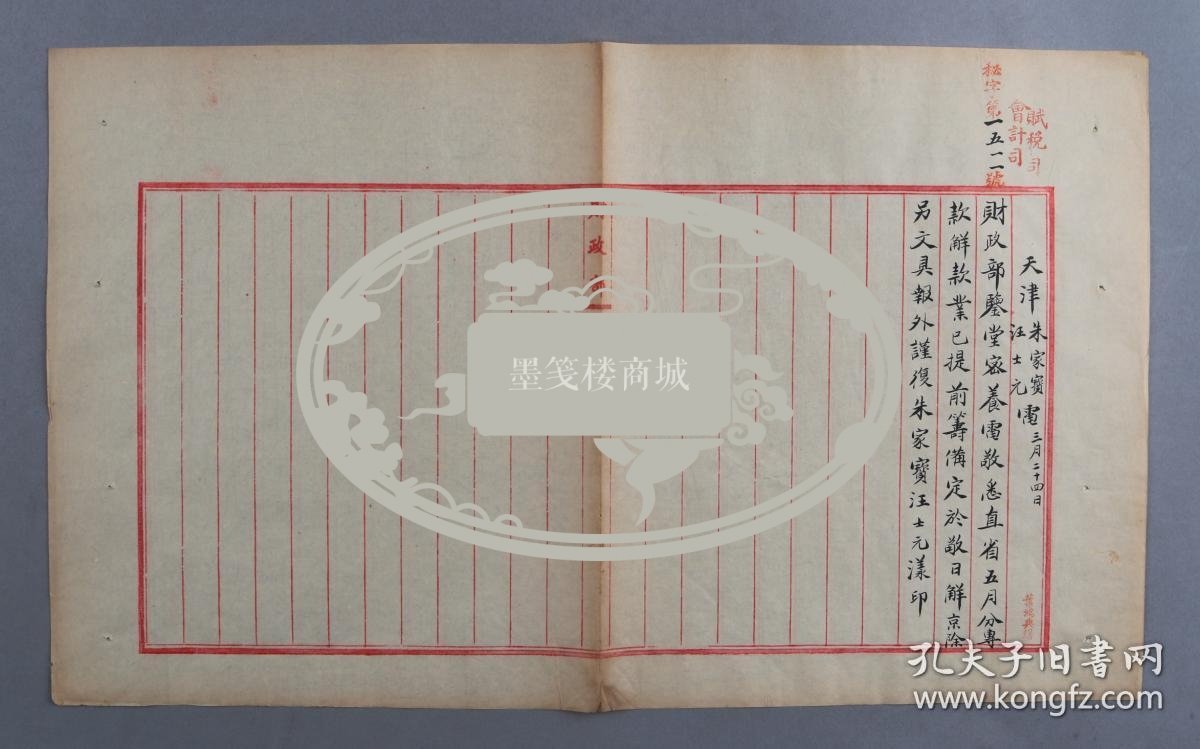 賦稅司
會計司
秘字第一五一一號
天津朱家寶
汪士元電三月二十四日
財政部鑒堂密養電敬悉直省五月分專
款解款業已提前籌備定於敬日解京除
另文具報外謹復朱家寶汪士元漾印
政
墨笺楼商城
孔夫子旧书网
www.kongfz.com